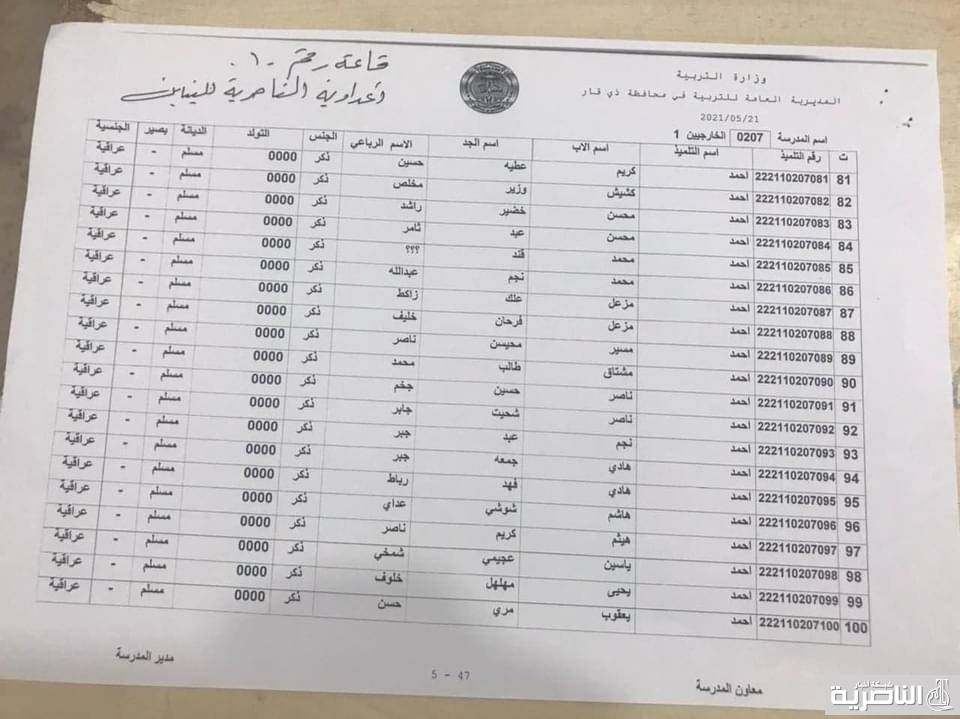 قاعة رقم ١٠
اعدادية الناصرية للبنين
وزارة التربية
المديرية العامة للتربية في محافظة ذي قار
2021/05/21
اسم المدرسة 0207 الخارجيين 1
ت رقم التلميذ اسم التلميذ اسم الاب اسم الجد الاسم الرباعي الجنس التولد الديانة يصير الجنسية
81 222110207081 احمد كريم عطيه حسين ذكر 0000 مسلم - عراقية
82 222110207082 احمد كشيش وزير مخلص ذكر 0000 مسلم - عراقية
83 222110207083 احمد محسن خضير راشد ذكر 0000 مسلم - عراقية
84 222110207084 احمد محسن عبد ثامر ذكر 0000 مسلم - عراقية
85 222110207085 احمد محمد فند ؟؟؟ ذكر 0000 مسلم - عراقية
86 222110207086 احمد محمد نجم عبدالله ذكر 0000 مسلم - عراقية
87 222110207087 احمد مزعل علك زاكط ذكر 0000 مسلم - عراقية
88 222110207088 احمد مزعل فرحان خليف ذكر 0000 مسلم - عراقية
89 222110207089 احمد مسير محيسن ناصر ذكر 0000 مسلم - عراقية
90 222110207090 احمد مشتاق طالب محمد ذكر 0000 مسلم - عراقية
91 222110207091 احمد ناصر حسين جخم ذكر 0000 مسلم - عراقية
92 222110207092 احمد ناصر شحيت جابر ذكر 0000 مسلم - عراقية
93 222110207093 احمد نجم عبد جبر ذكر 0000 مسلم - عراقية
94 222110207094 احمد هادي جمعه جبر ذكر 0000 مسلم - عراقية
95 222110207095 احمد هادي فهد رباط ذكر 0000 مسلم - عراقية
96 222110207096 احمد هاشم شوشي عداي ذكر 0000 مسلم - عراقية
97 222110207097 احمد هيثم كريم ناصر ذكر 0000 مسلم - عراقية
98 222110207098 احمد ياسين عجيمي شمخي ذكر 0000 مسلم - عراقية
99 222110207099 احمد يحيى مهلهل خلوف ذكر 0000 مسلم - عراقية
100 222110207100 احمد يعقوب مري حسن ذكر 0000 مسلم - عراقية
معاون المدرسة
5 - 47
مدير المدرسة
شبكة اخبار
الناصرية